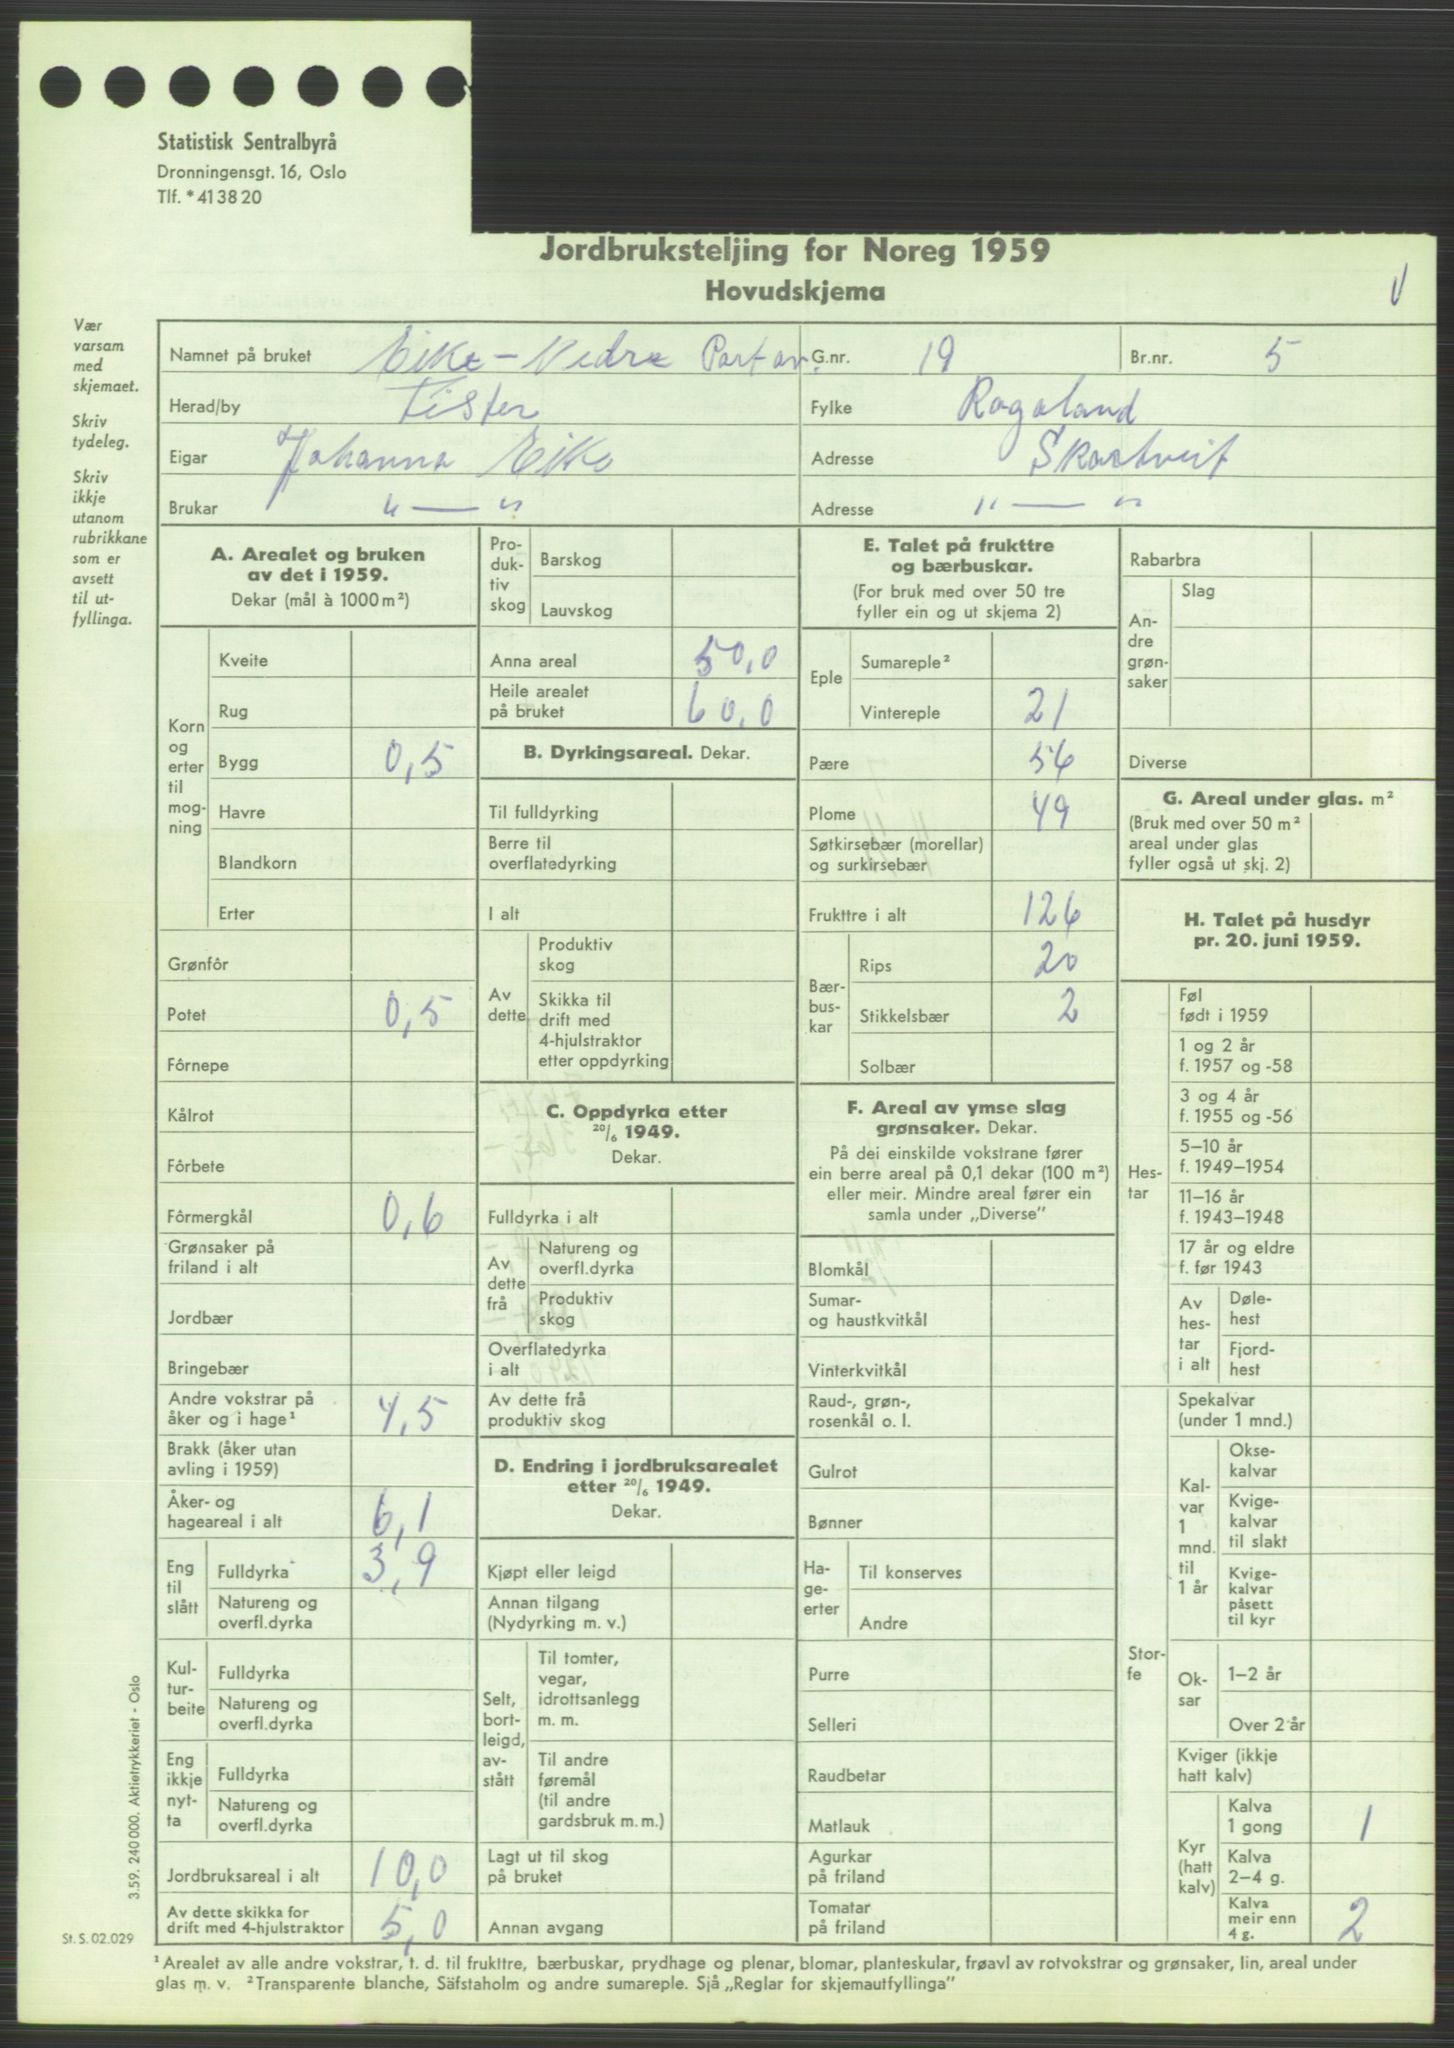 Statistisk Sentralbyrå
Dronningensgt. 16, Oslo
Tlf. * 41 38 20
Jordbruksteljing for Noreg 1959
Hovudskjema
V
Vær
varsam
med
skjemaet.
Skriv
tydeleg.
Skriv
ikkje
utanom
rubrikkane
som er
avsett
til ut-
fyllinga.
Namnet på bruket Eike - Nedre Part av G.nr. 19 Br.nr. 5
Herad/by Fister Fylke Rogaland
Eigar Johanna Eike Adresse Skartveit
Brukar " — " Adresse " — "
A. Arealet og bruken
av det i 1959.
Dekar (mål à 1000 m²)
Korn
og
erter
til
mog-
ning
Kveite
Rug
Bygg 0,5
Havre
Blandkorn
Erter
Grønfôr
Potet 0,5
Fôrnepe
Kålrot
Fôrbete
Fôrmergkål 0,6
Grønsaker på
friland i alt
Jordbær
Bringebær
Andre vokstrar på
åker og i hage¹ 4,5
Brakk (åker utan
avling i 1959)
Åker- og
hageareal i alt 6,1
Eng
til
slått
Fulldyrka 3,9
Natureng og
overfl.dyrka
Kul-
tur-
beite
Fulldyrka
Natureng og
overfl.dyrka
Eng
ikkje
nyt-
ta
Fulldyrka
Natureng og
overfl.dyrka
Jordbruksareal i alt 10,0
Av dette skikka for
drift med 4-hjulstraktor 5,0
Pro-
duk-
tiv
skog
Barskog
Lauvskog
Anna areal 50,0
Heile arealet
på bruket 60,0
B. Dyrkingsareal. Dekar.
Til fulldyrking
Berre til
overflatedyrking
I alt
Av
dette
Produktiv
skog
Skikka til
drift med
4-hjulstraktor
etter oppdyrking
C. Oppdyrka etter
20/6 1949.
Dekar.
Fulldyrka i alt
Av
dette
frå
Natureng og
overfl.dyrka
Produktiv
skog
Overflatedyrka
i alt
Av dette frå
produktiv skog
D. Endring i jordbruksarealet
etter 20/6 1949.
Dekar.
Kjøpt eller leigd
Annan tilgang
(Nydyrking m. v.)
Selt,
bort-
leigd,
av-
stått
Til tomter,
vegar,
idrottsanlegg
m. m.
Til andre
føremål
(til andre
gardsbruk m. m.)
Lagt ut til skog
på bruket
Annan avgang
E. Talet på frukttre
og bærbuskar.
(For bruk med over 50 tre
fyller ein og ut skjema 2)
Eple
Sumareple²
Vintereple 21
Pære 56
Plome 49
Søtkirsebær (morellar)
og surkirsebær
Frukttre i alt 126
Bær-
bus-
kar
Rips 20
Stikkelsbær 2
Solbær
F. Areal av ymse slag
grønsaker. Dekar.
På dei einskilde vokstrane fører
ein berre areal på 0,1 dekar (100 m²)
eller meir. Mindre areal fører ein
samla under „Diverse”
Blomkål
Sumar-
og haustkvitkål
Vinterkvitkål
Raud-, grøn-,
rosenkål o. l.
Gulrot
Bønner
Ha-
ge-
erter
Til konserves
Andre
Purre
Selleri
Raudbetar
Matlauk
Agurkar
på friland
Tomatar
på friland
Rabarbra
An-
dre
grøn-
saker
Slag
Diverse
G. Areal under glas. m²
(Bruk med over 50 m²
areal under glas
fyller også ut skj. 2)
H. Talet på husdyr
pr. 20. juni 1959.
Hes-
tar
Føl
født i 1959
1 og 2 år
f. 1957 og -58
3 og 4 år
f. 1955 og -56
5–10 år
f. 1949–1954
11–16 år
f. 1943–1948
17 år og eldre
f. før 1943
Av
hes-
tar
i alt
Døle-
hest
Fjord-
hest
Stor-
fe
Spekalvar
(under 1 mnd.)
Kal-
var
1
mnd.
til
1 år
Okse-
kalvar
Kvige-
kalvar
til slakt
Kvige-
kalvar
påsett
til kyr
Ok-
sar
1–2 år
Over 2 år
Kviger (ikkje
hatt kalv)
Kyr
(hatt
kalv)
Kalva
1 gong 1
Kalva
2–4 g.
Kalva
meir enn
4 g. 2
3.59. 240 000. Aktietrykkeriet - Oslo
St. S. 02.029
¹ Arealet av alle andre vokstrar, t. d. til frukttre, bærbuskar, prydhage og plenar, blomar, planteskular, frøavl av rotvokstrar og grønsaker, lin, areal under
glas m. v. ² Transparente blanche, Säfstaholm og andre sumareple. Sjå „Reglar for skjemautfyllinga”